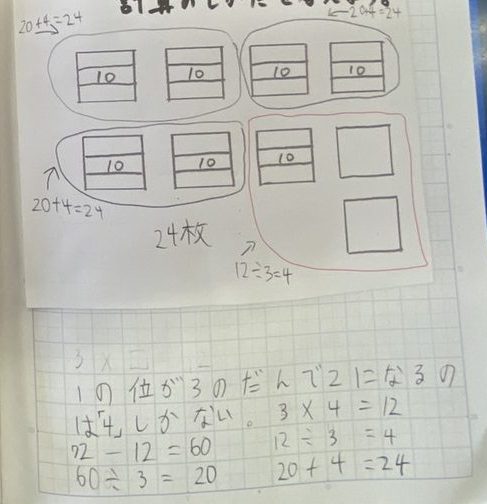 計算のしかたを考えよう
20+4=24
20+4=24
10 10 10 10
10 10 10
20+4=24
24枚
12÷3=4
3×□
1の位が3のだんで2になるの
は「4」しかない。 3×4=12
72-12=60 12÷3=4
60÷3=20 20+4=24